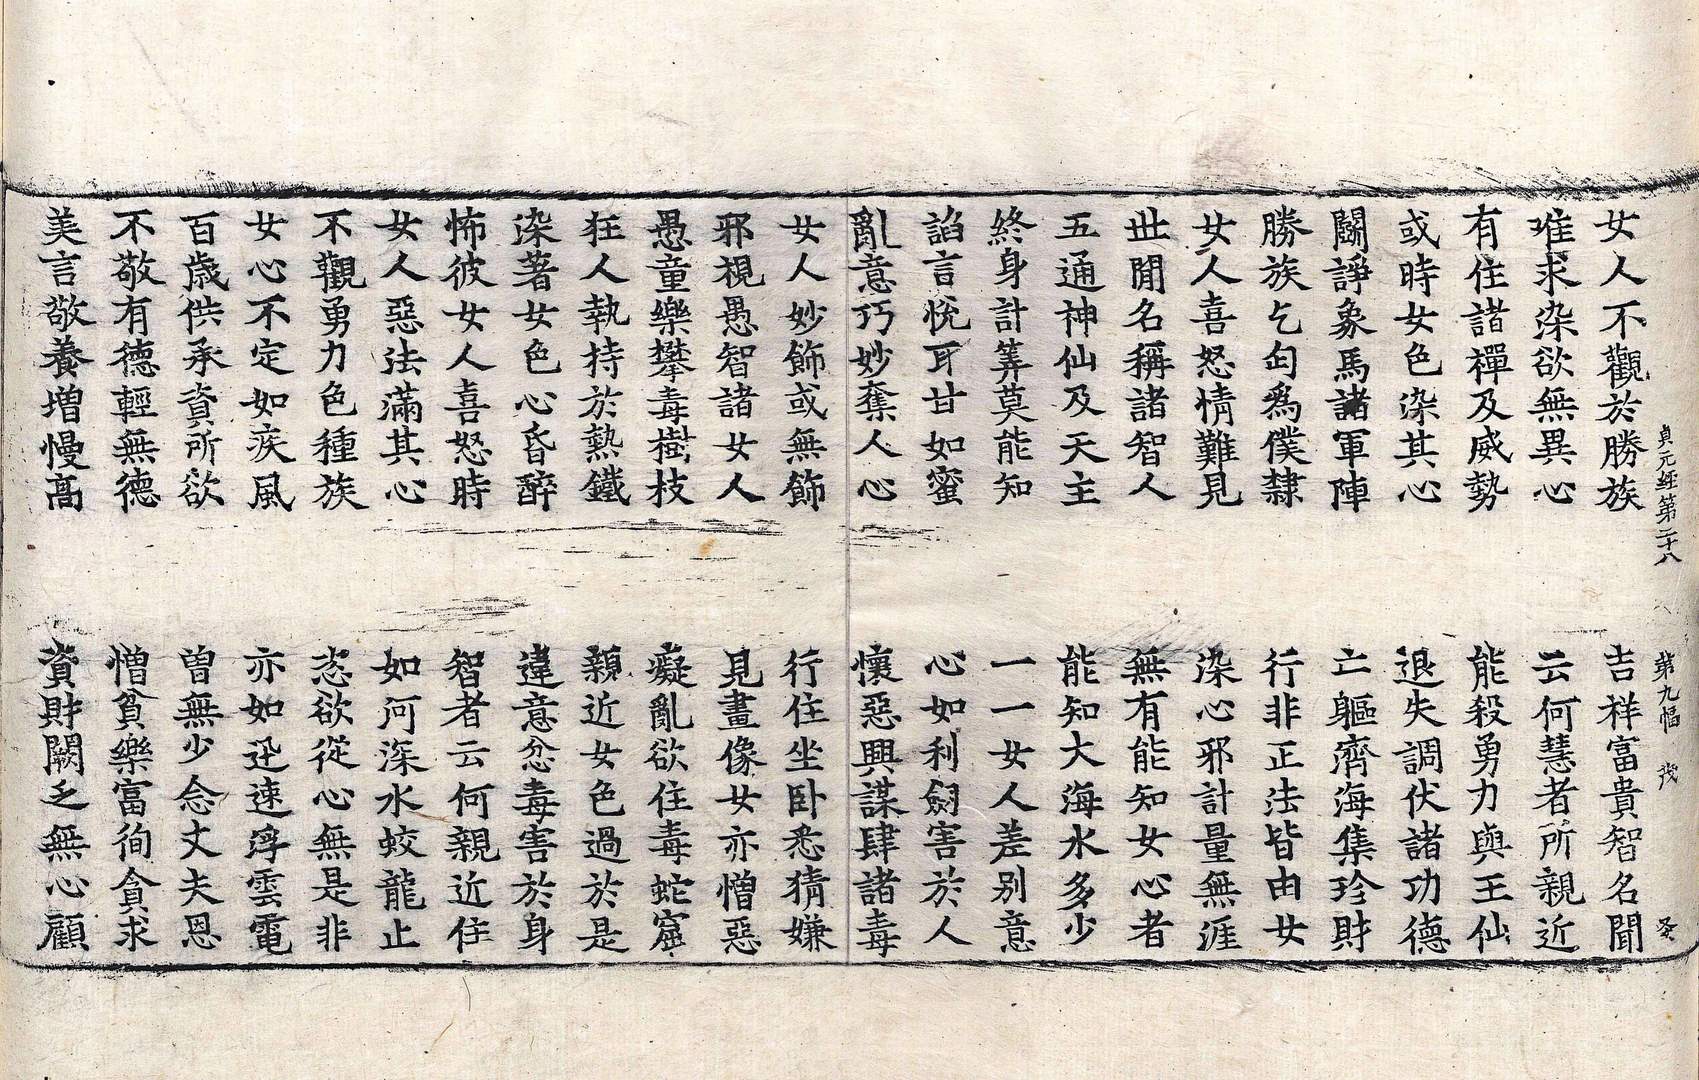 貞元經第二十八 第九幅
女人不觀於勝族 吉祥富貴智名聞
唯求染欲無異心 云何慧者所親近
有住諸禪及威勢 能殺勇力與王仙
或時女色染其心 退失調伏諸功德
鬪諍象馬諸軍陣 亡軀濟海集珍財
勝族乞匃為僕隸 行非正法皆由女
女人喜怒情難見 染心邪計量無涯
丗閒名稱諸智人 無有能知女心者
五通神仙及天主 能知大海水多少
終身計筭莫能知 一一女人差别意
諂言悅耳甘如蜜 心如利劒害於人
亂意巧妙奪人心 懷惡興謀肆諸毒
女人妙飾或無飾 行住坐卧悉猜嫌
邪視愚智諸女人 見畫像女亦憎惡
愚童樂攀毒樹枝 癡亂欲住毒蛇窟
狂人執持於熱鐵 親近女色過於是
染著女色心昏醉 違意忿毒害於身
怖彼女人喜怒時 智者云何親近住
女人惡法滿其心 如河深水蛟龍止
不觀勇力色種族 恣欲從心無是非
女心不定如疾風 亦如迅速浮雲電
百歲供承資所欲 曽無少念丈夫恩
不敬有德輕無德 憎貧樂富徇貪求
美言敬養増慢高 資財闕乏無心顧